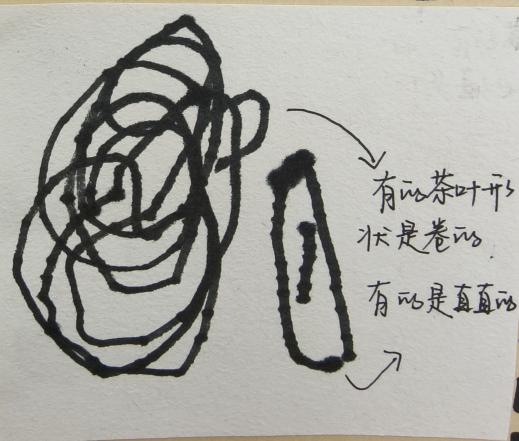 有的茶叶形
状是卷的
有的是直直的